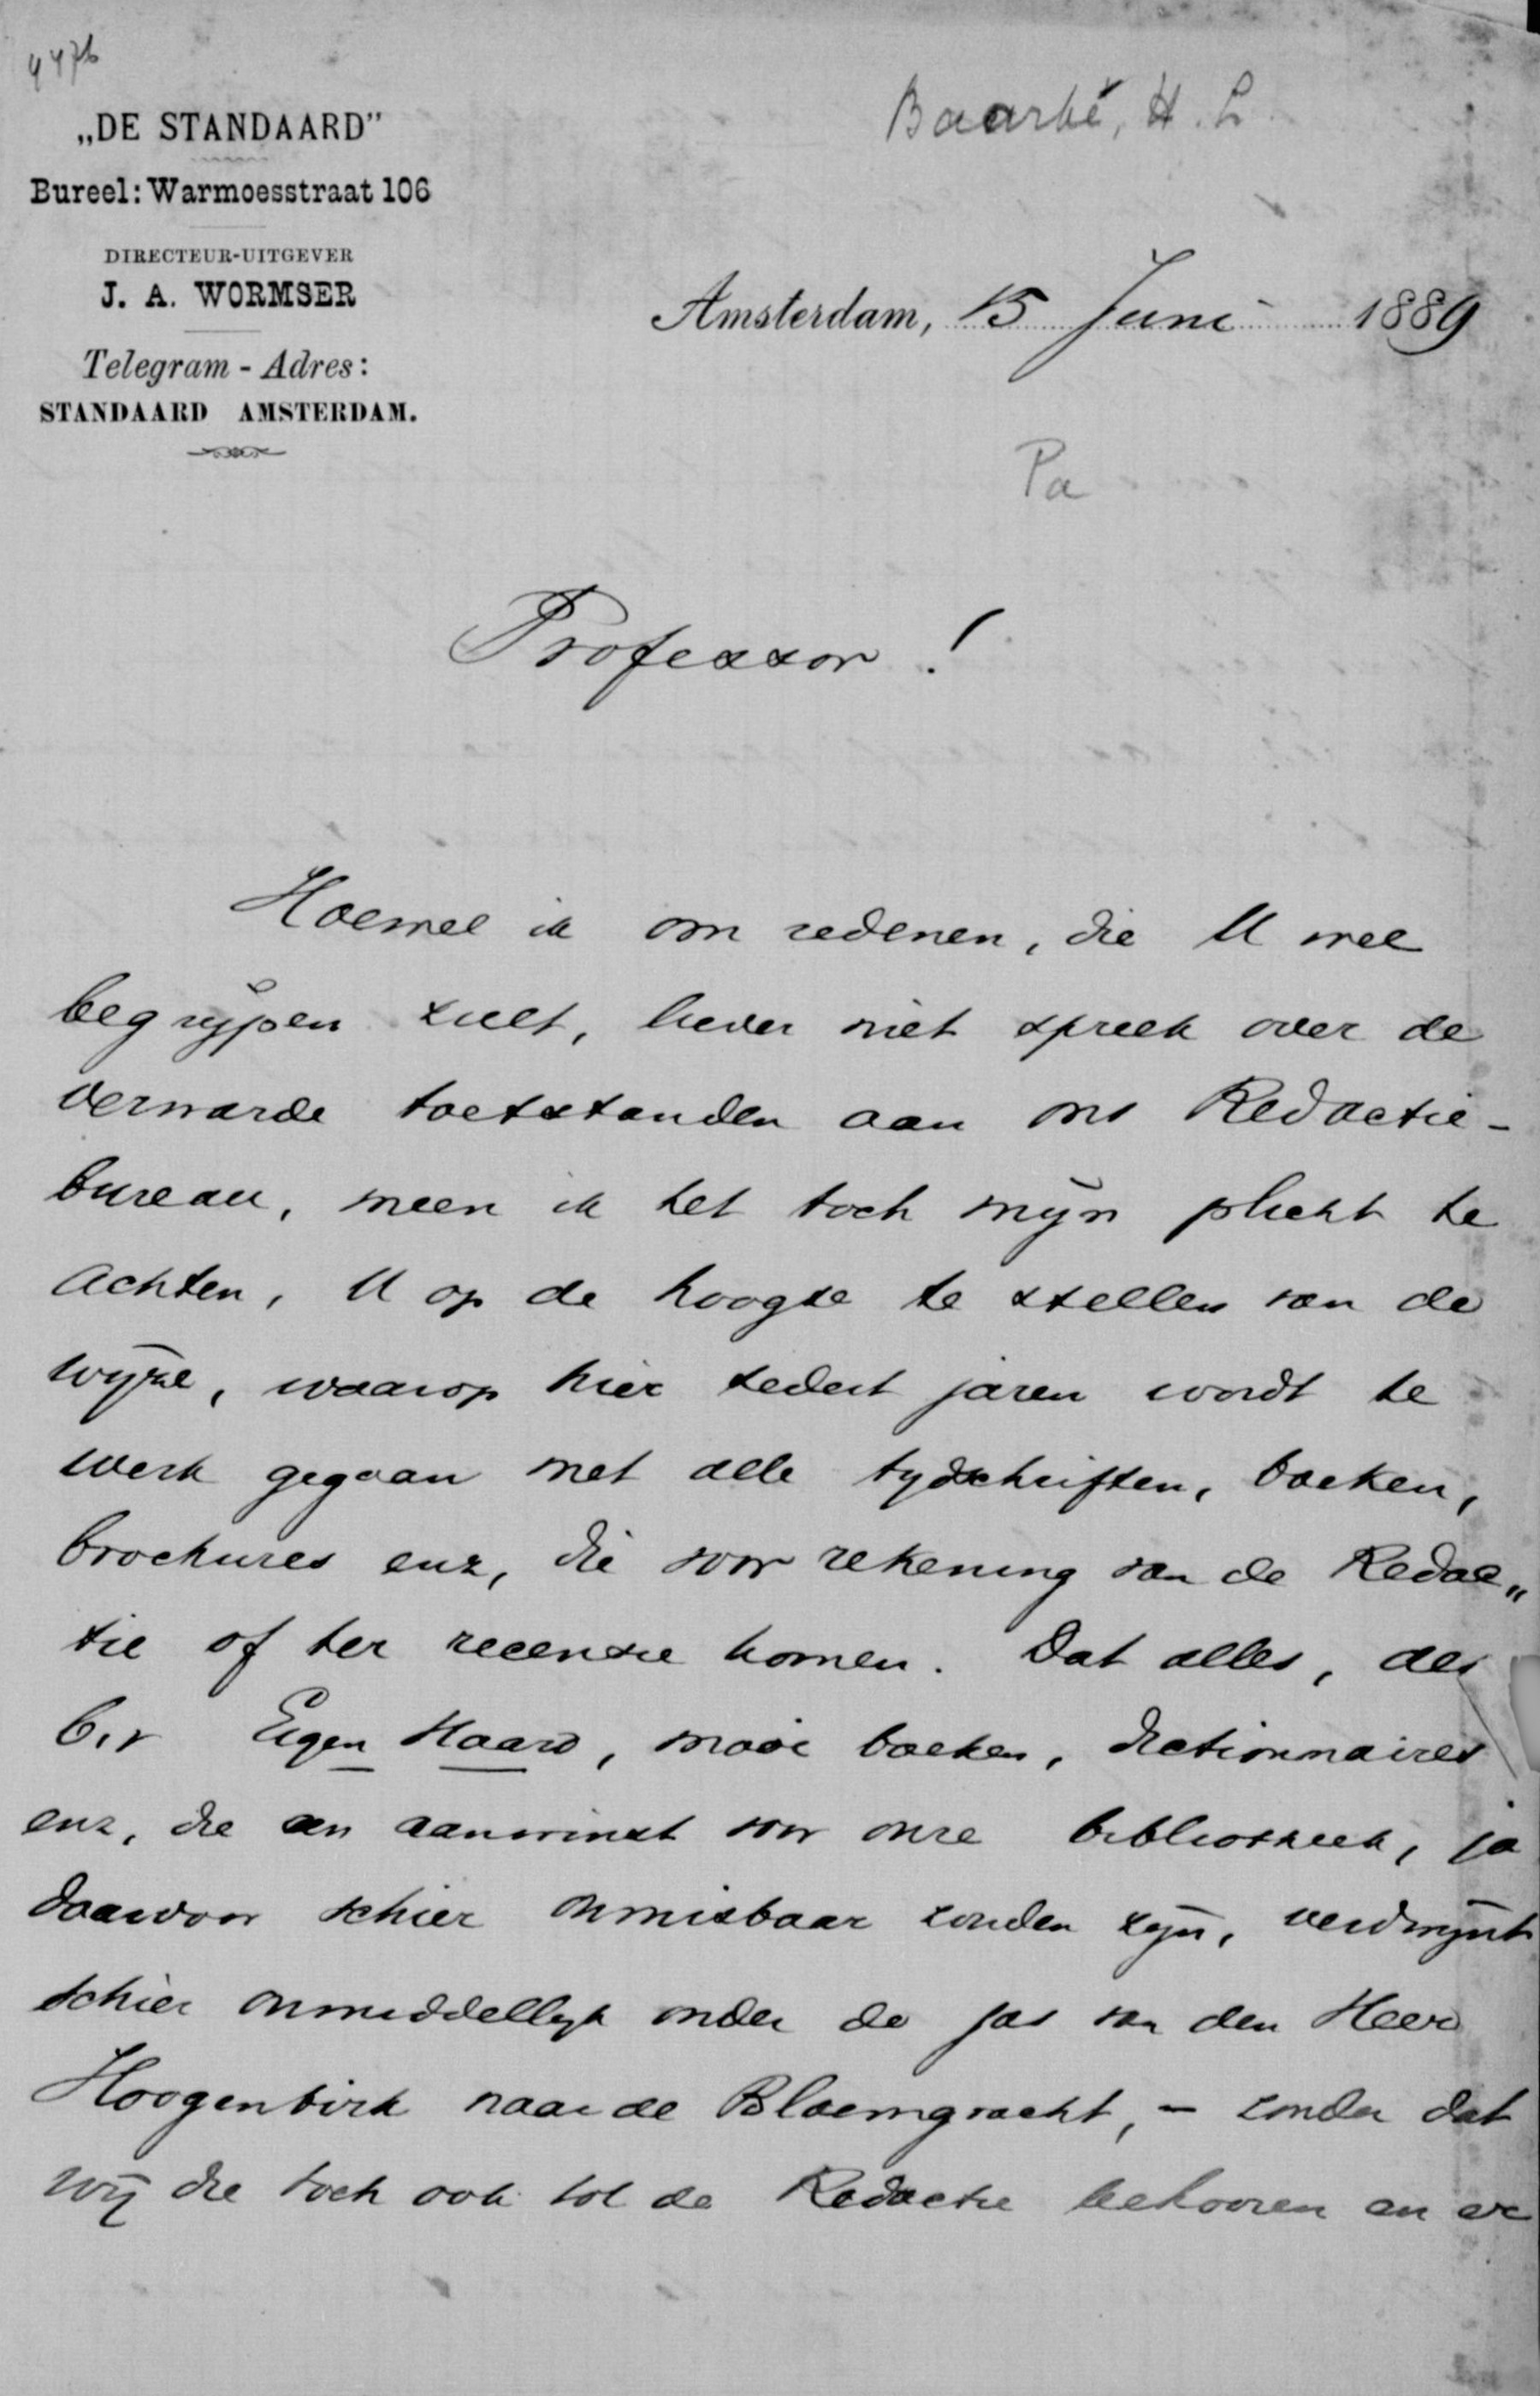 4476
„DE STANDAARD”
Baarbé, H. L.
Bureel: Warmoesstraat 106
DIRECTEUR-UITGEVER
J. A. WORMSER
Amsterdam, 15 Juni 1889
Telegram - Adres:
STANDAARD AMSTERDAM.
Pa
Professor!
Hoewel ik om redenen, die U wel
begrijpen zult, liever niet spreek over de
verwarde toetstanden aan ons Redactie-
bureau, meen ik het toch mijn plicht te
achten, U op de hoogte te stellen van de
wijze, waarop hier sedert jaren wordt te
werk gegaan met alle tydschriften, boeken,
brochures enz, die voor rekening van de Redac„
tie of ter recensie komen. Dat alles, als
b.v Eigen Haard, mooie boeken, dictionnaires
enz, die een aanwinst voor onze bibliotheek, ja
daarvoor schier onmisbaar zouden zijn, verdwijnt
schier onmiddellyk onder de jas van den Heer
Hoogenbirk naar de Bloemgracht, - zonder dat
wij die toch ook tot de Redactie behooren en er